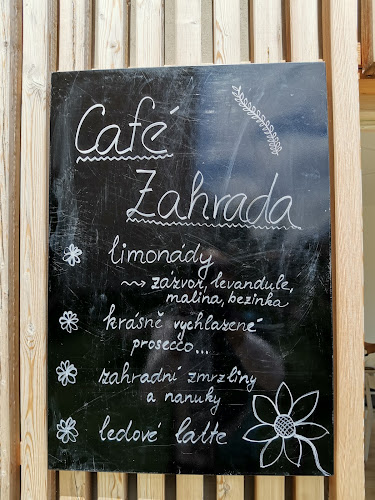 Café
Zahrada
limonády
→ zázvor, levandule,
malina, bezinka
krásně vychlazené
prosecco...
zahradní zmrzliny
a nanuky
ledové latte